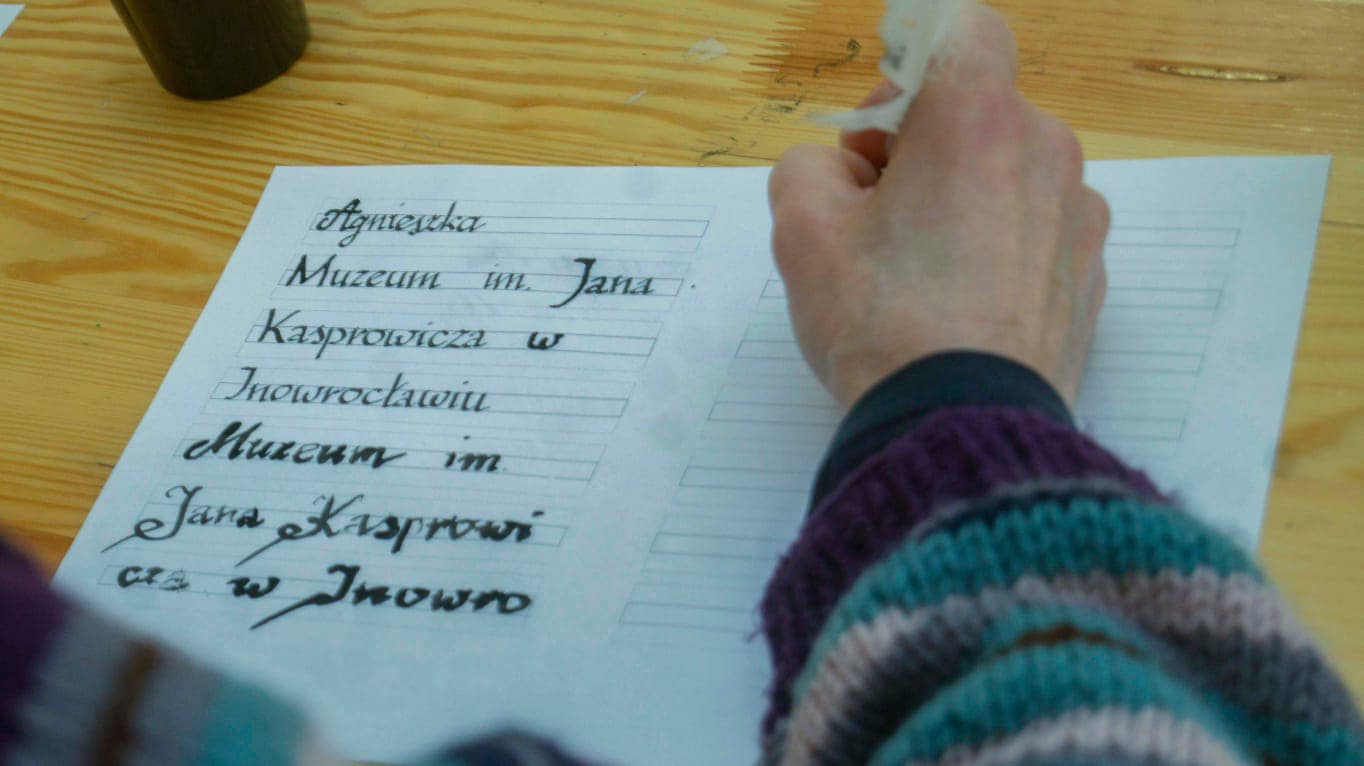 Agnieszka
Muzeum im. Jana
Kasprowicza w
Inowrocławiu
Muzeum im.
Jana Kasprowi
cza w Inowro